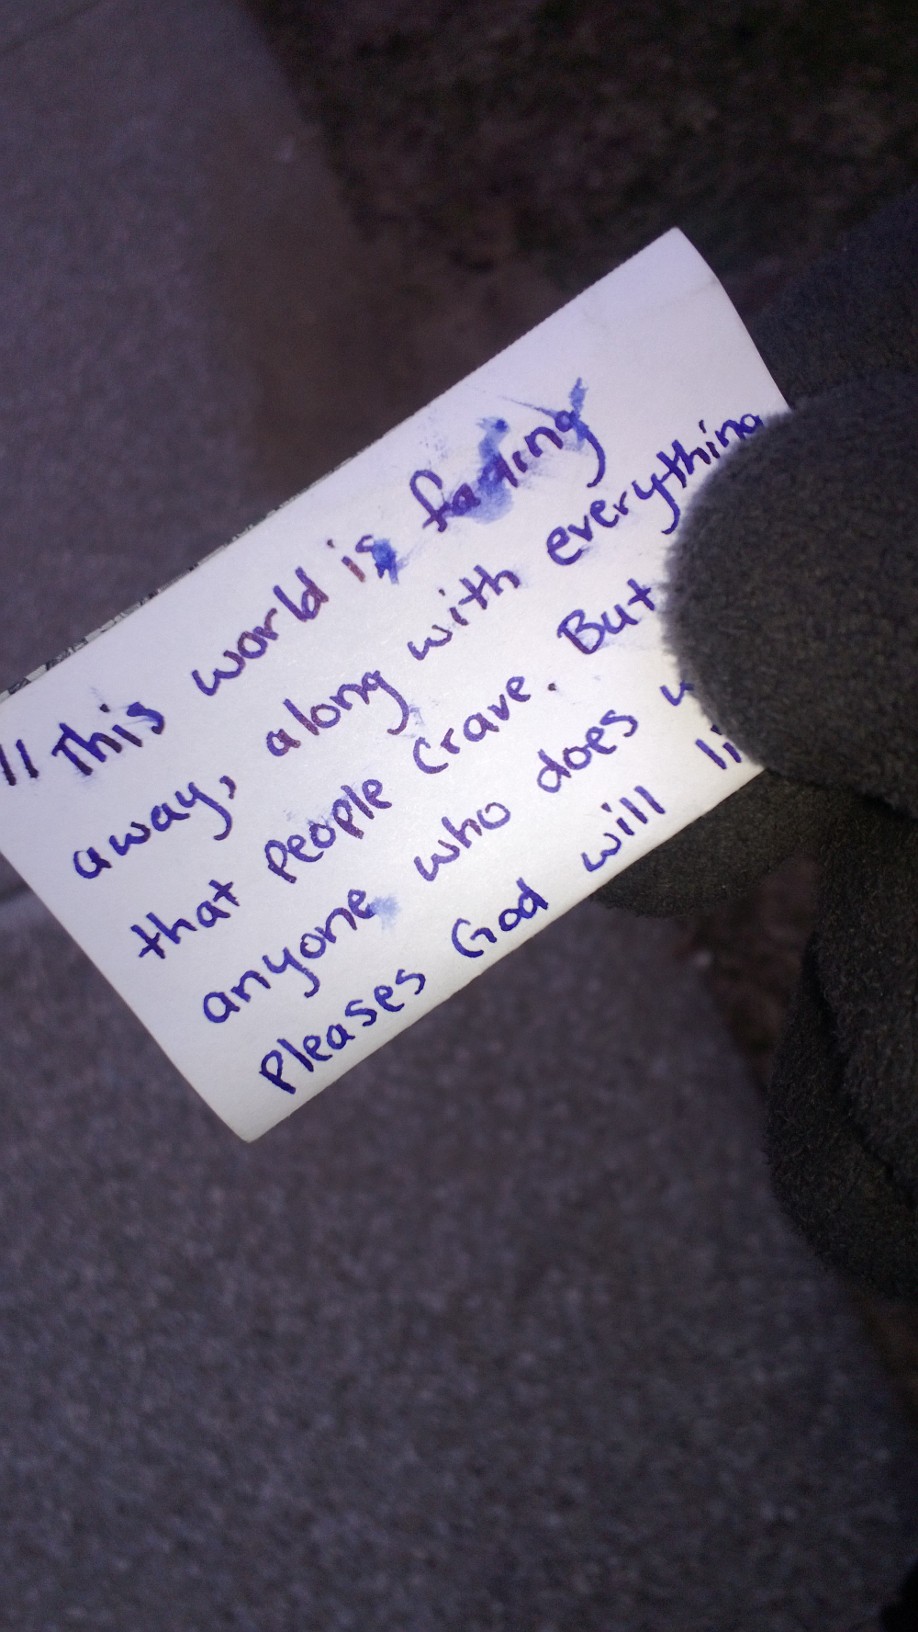 "This world is fading
away, along with everything
that People Crave. But
anyone who does
Pleases God will